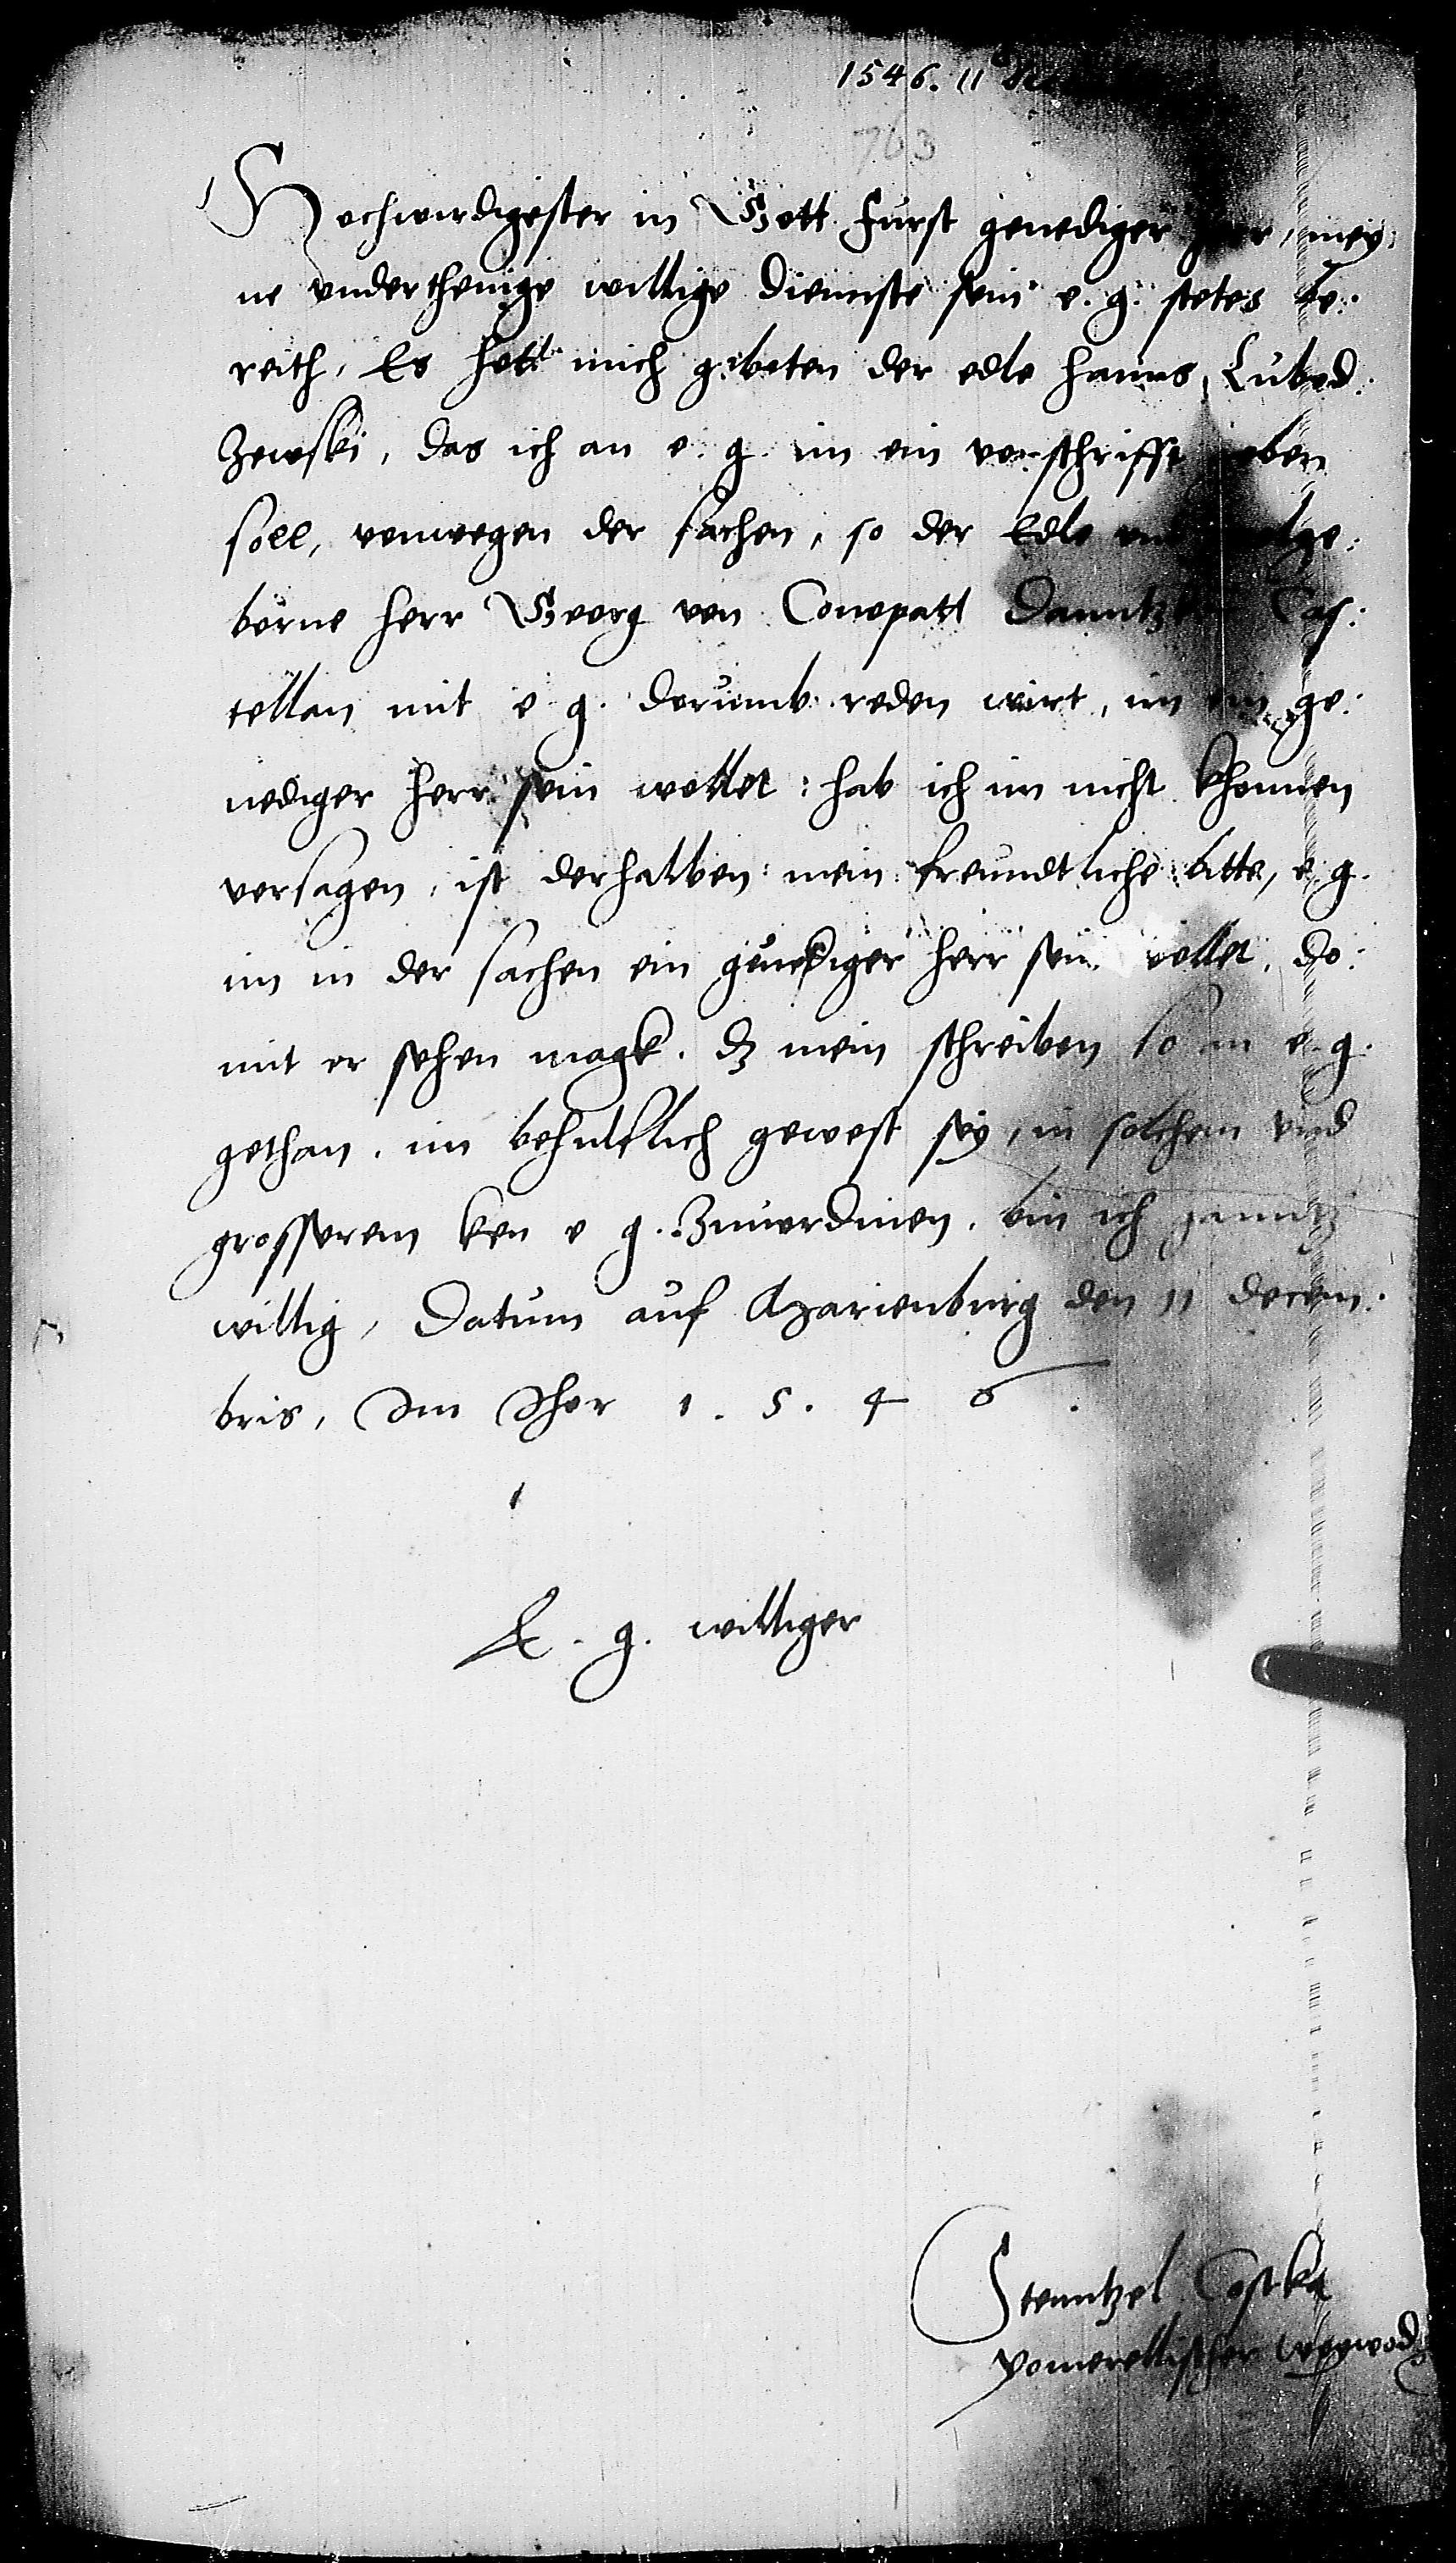 1546. 11
763
Hochwirdigester in Gott Furst genediger herr, mey:
ne underthenige willige diennste sein e. g. stetes be:
reith, Es hett mich gebeten der edle Hanns Lubod:
zewski, das ich an e. g. im ein vorschrifft geben
soll, vonwegen der sachen, so der Edle und wolge:
borne herr Georg von Conopatt Danntzker Cas:
tellan mit e g. dorumb reden wirt, im ein ge:
nediger herr sein wollet: hab ich im nicht khonnen
versagen, ist derhalben mein freundtliche bitte, e. g.
im in der sachen ein genediger herr sein wollet, do:
mit er sehen magk. dz mein schreiben so an e. g.
gethan. im behulflich gewest sey, in solchem und
grosserem ken e g. zuuordinen. bin ich ganntz
willig, Datum auf Marienburg den 11 decem:
bris, Im Jhor 1. 5. 4 6.
E. g. williger
Stenntzel Costka
Pomerellischer Woywod